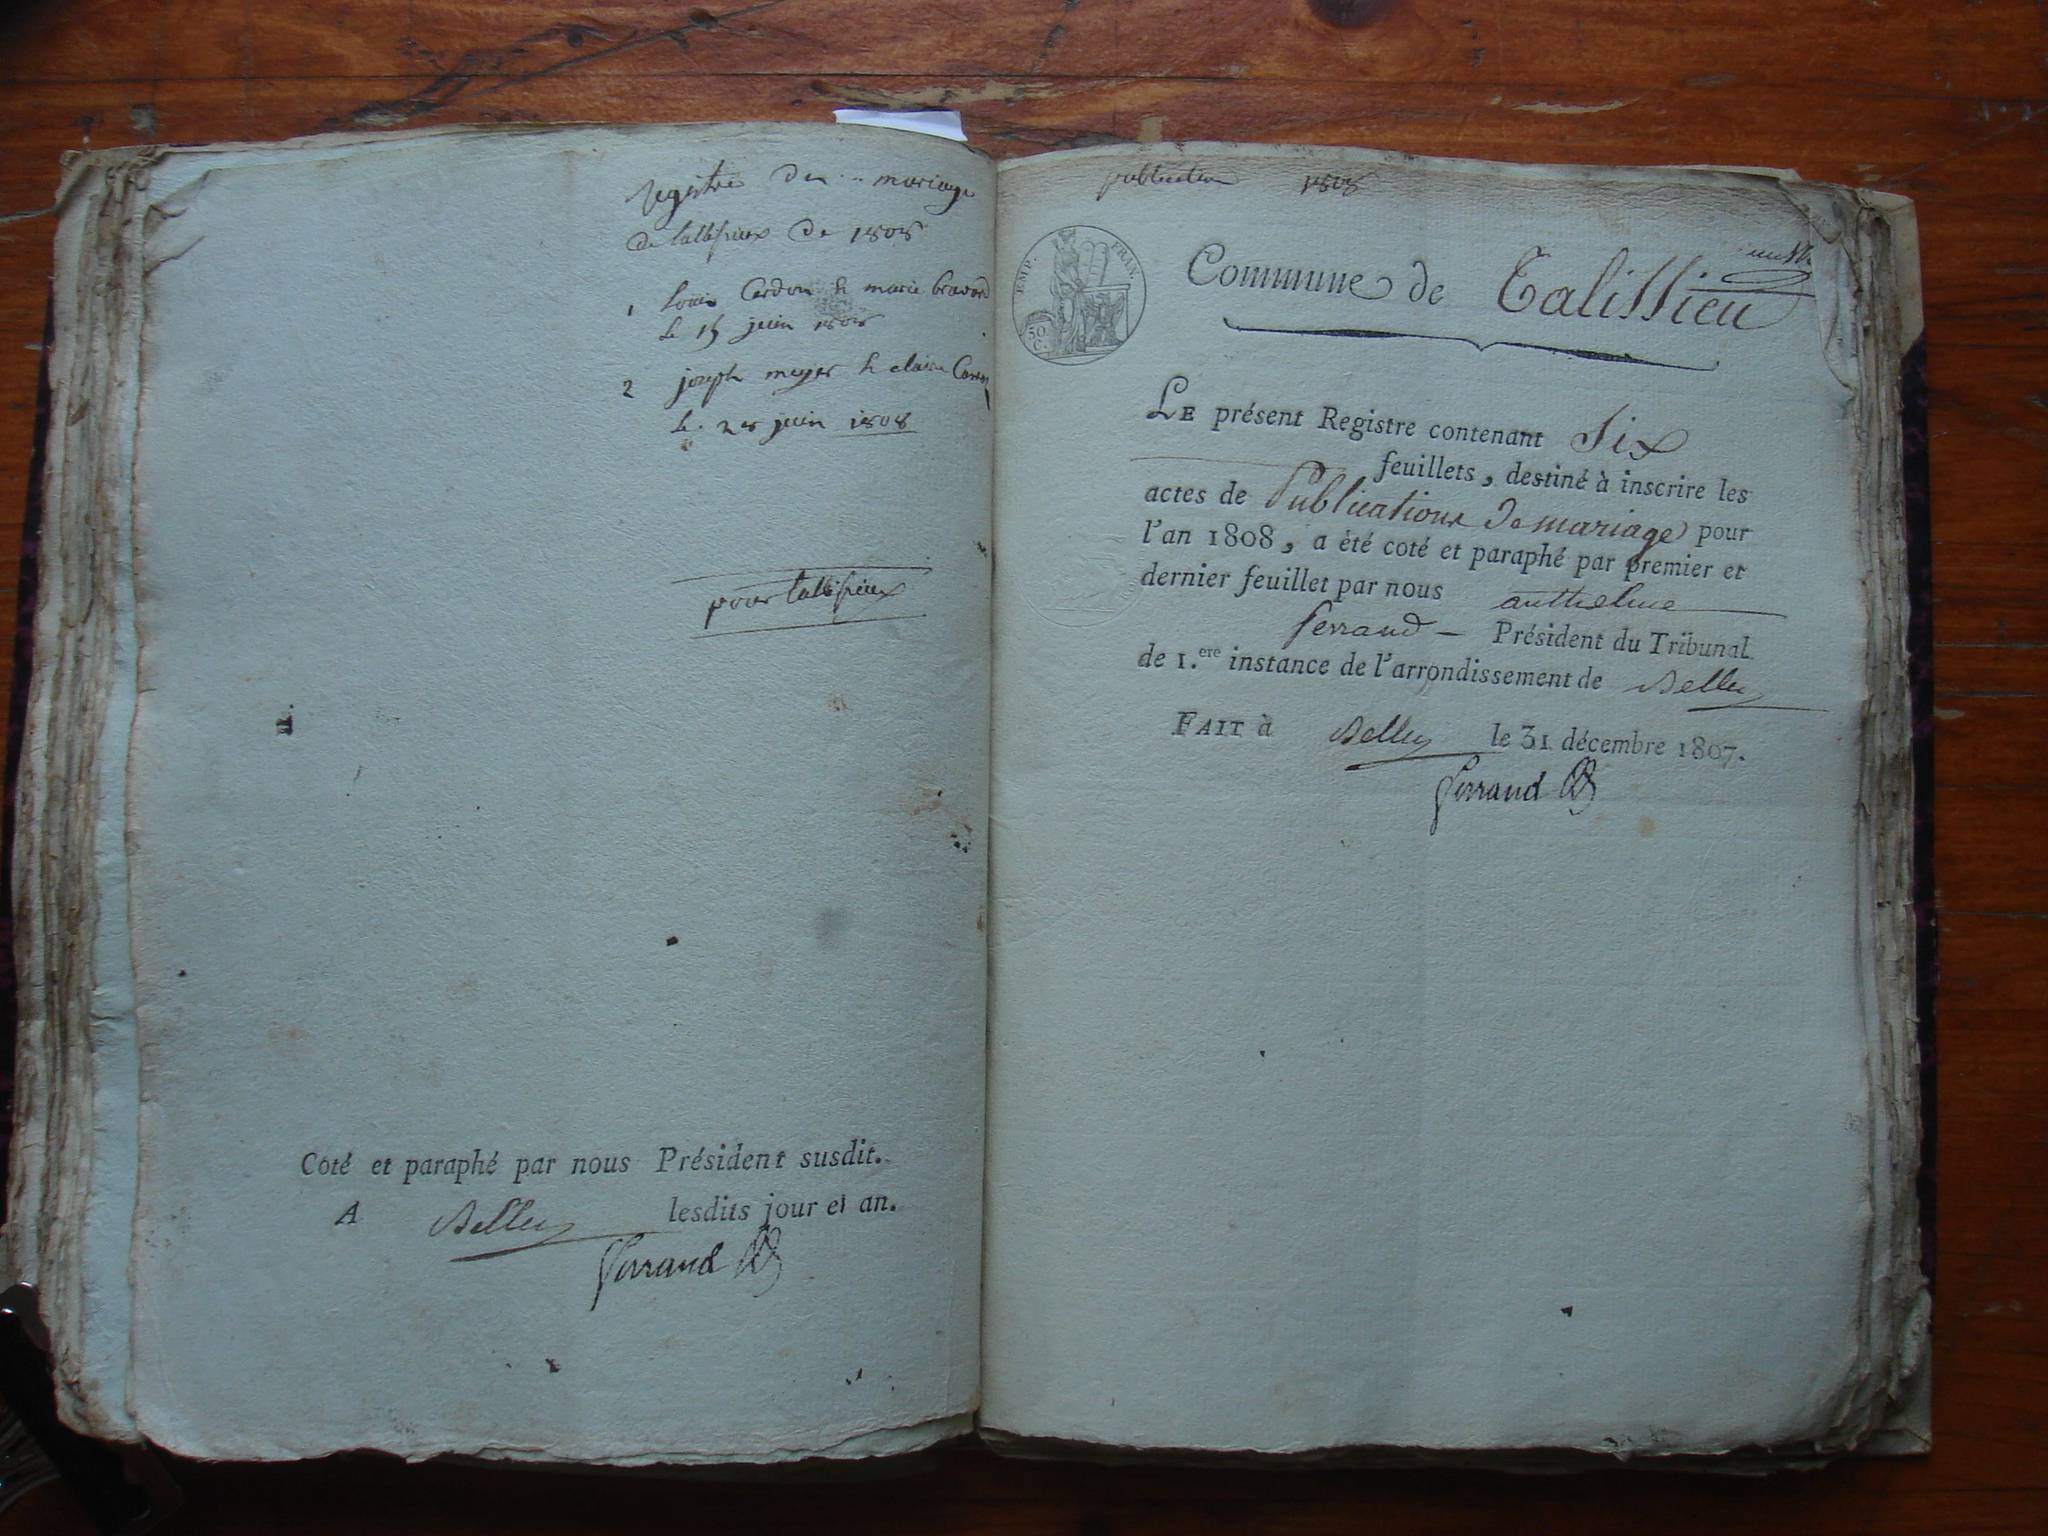 registre des mariage
de tallissieux de 1808
1 louis Cardon & marie bravard
le 15 juin 1808
2 joseph meyer & claire
le 28 juin 1808
pour tallissieux
Coté et paraphé par nous Président susdit.
A Belley lesdits jour et an.
Ferrand
publication 1808
EMP. FRAN.
50 C.
Commune de Talissieu
LE présent Registre contenant Six
feuillets, destiné à inscrire les
actes de Publications de mariage pour
l'an 1808, a été coté et paraphé par premier et
dernier feuillet par nous anthelme
ferrand — Président du Tribunal
de 1.ere instance de l'arrondissement de Belley
FAIT à Belley le 31 décembre 1807.
Ferrand